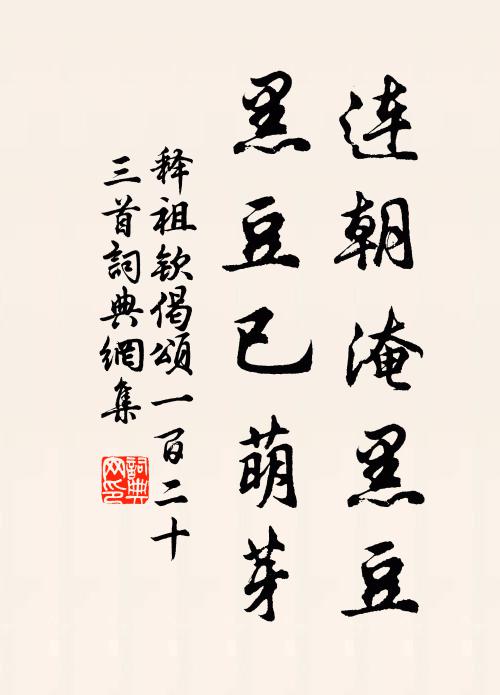 连朝淹黑豆
黑豆已萌芽
释祖钦偈颂一百二十
三首詞典網集
詞典
网印